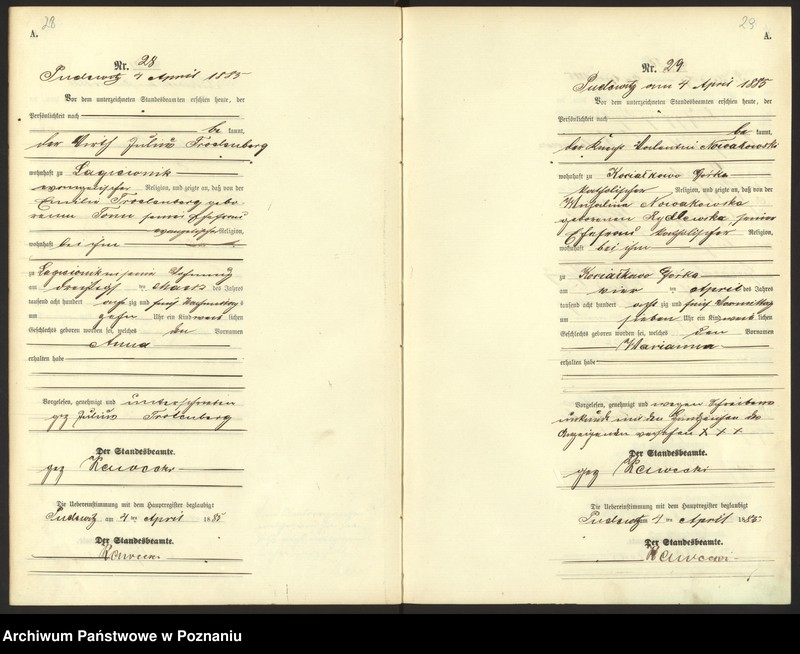 28
A.
Nr. 28
Pudewitz 4 April 1885
Vor dem unterzeichneten Standesbeamten erschien heute, der
Persönlichkeit nach
be kannt,
der Wirth Julius Trodenberg
wohnhaft zu Lagiewnik
evangelischer Religion, und zeigte an, daß von der
Emilie Trodenberg gebo
renen seiner Ehefrau
evangelischer Religion,
wohnhaft bei ihm
zu Lagiewnik in seiner Wohnung
am des Jahres
tausend acht hundert acht zig und fünf Nachmittag s
um Uhr ein Kind weib lichen
Geschlechts geboren worden sei, welches den Vornamen
Anna
erhalten habe
Vorgelesen, genehmigt und unterschrieben
gez Julius Trodenberg
Der Standesbeamte.
gez
Die Uebereinstimmung mit dem Hauptregister beglaubigt
Pudewitz am 4 ten April 1885
Der Standesbeamte.
29
A.
Nr. 29
Pudewitz am 4 April 1885
Vor dem unterzeichneten Standesbeamten erschien heute, der
Persönlichkeit nach
be kannt,
der Knecht Valentin Nowakowski
wohnhaft zu Górka
katholischer Religion, und zeigte an, daß von der
Nowakowska
geborenen Rydlewska seiner
Ehefrau katholischer Religion,
wohnhaft bei ihm
zu Górka
am vier ten April des Jahres
tausend acht hundert acht zig und fünf Vormittag
um sieben Uhr ein Kind weib lichen
Geschlechts geboren worden sei, welches den Vornamen
Marianna
erhalten habe
Vorgelesen, genehmigt und wegen Schreibens
unkunde mit den Handzeichen des
Anzeigenden versehen X X X
Der Standesbeamte.
gez
Die Uebereinstimmung mit dem Hauptregister beglaubigt
Pudewitz am 4 ten April 1885
Der Standesbeamte.
Archiwum Państwowe w Poznaniu